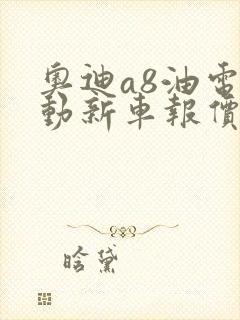 奧迪a8油電
動新車報價
晗黛